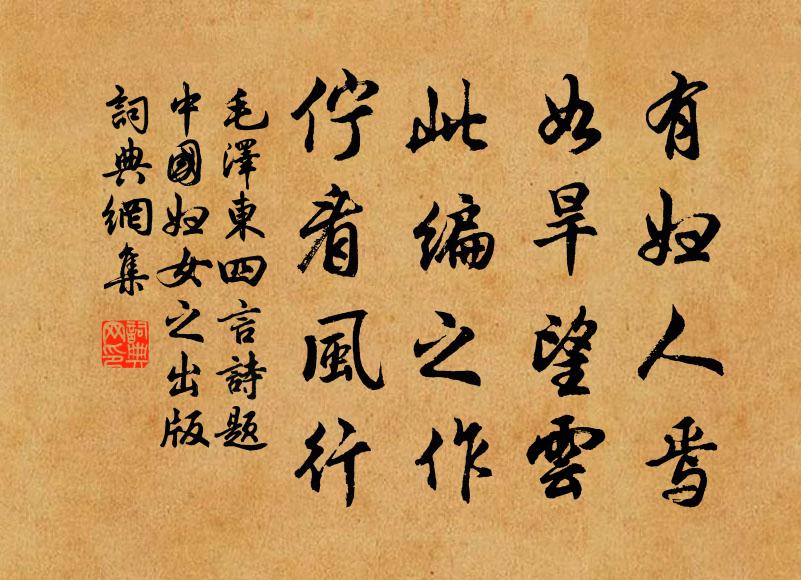 有妇人焉
如旱望雲
此编之作
佇看風行
毛澤東四言詩題
中國妇女之出版
詞典網集
詞典
网印